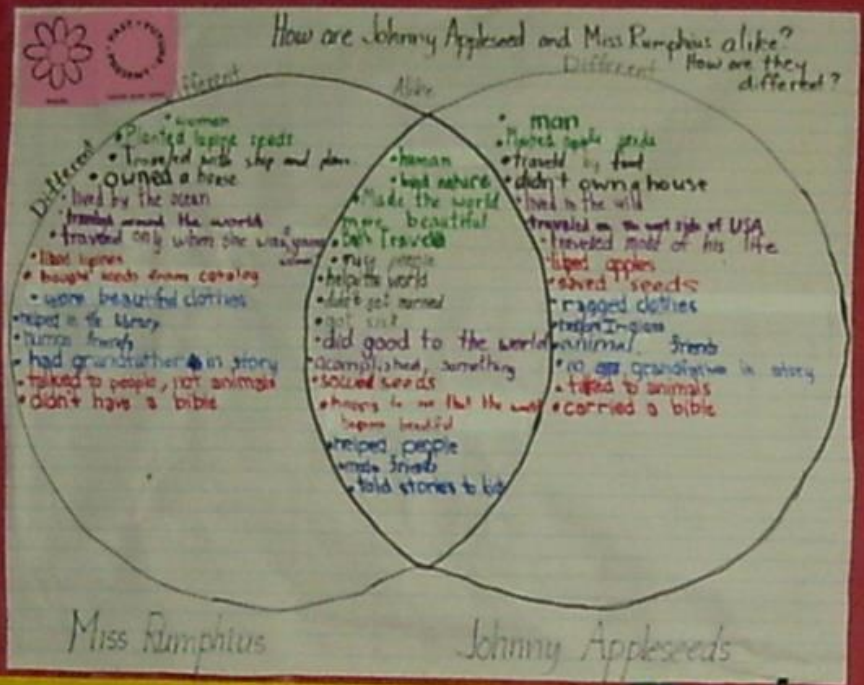 PAST • FUTURE
How are Johnny Appleseed and Miss Rumphius alike?
How are they
different?
Different
Alike
Different
Different
• woman
• Planted lupine seeds
• Traveled with ship and plane
• owned a house
• lived by the ocean
• traveled around the world
• traveled only when she was young
• liked lupines
• bought seeds from catalog
• wore beautiful clothes
• helped in the library
• human friends
• had grandfather in story
• talked to people, not animals
• didn't have a bible
• human
• nature
• Made the world
more beautiful
• Both Traveled
• people
• help the world
• didn't get married
• got sick
• did good to the world
acomplished, something
• sowed seeds
• happy to see that the world
beautiful
• helped people
• made friends
• told stories to kids
• man
• Planted apple seeds
• traveld by foot
• didn't own a house
• lived in the wild
• traveled on the west side of USA
• travelled most of his life
• liked apples
• saved seeds
• ragged clothes
• animal friends
• no grandfather in story
• talked to animals
• carried a bible
Miss Rumphius
Johnny Appleseeds